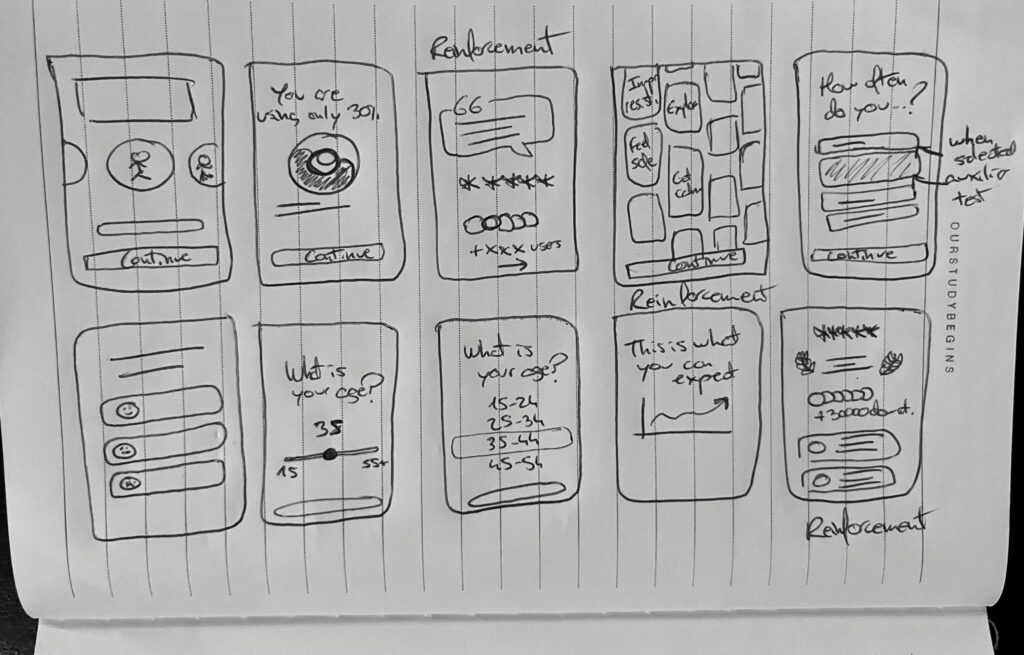 Reinforcement
Continue
You are
using only 30%
Continue
66
+xxx users
Explore
Get
Continue
How often
do you...?
when
selected
auxiliar
text
Continue
OURSTUDYBEGINS
What is
your age?
35
15
55+
What is
your age?
15-24
25-34
35-44
45-54
Reinforcement
This is what
you can
expect
+30000
Reinforcement